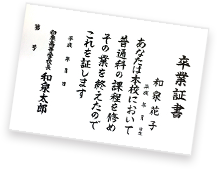 卒業証書
和泉花子
平成 年 月 日
あなたは本校において
普通科の課程を修め
その業を終えたので
これを証します
平成 年 月 日
和泉高等学校長
和泉太郎
第 号